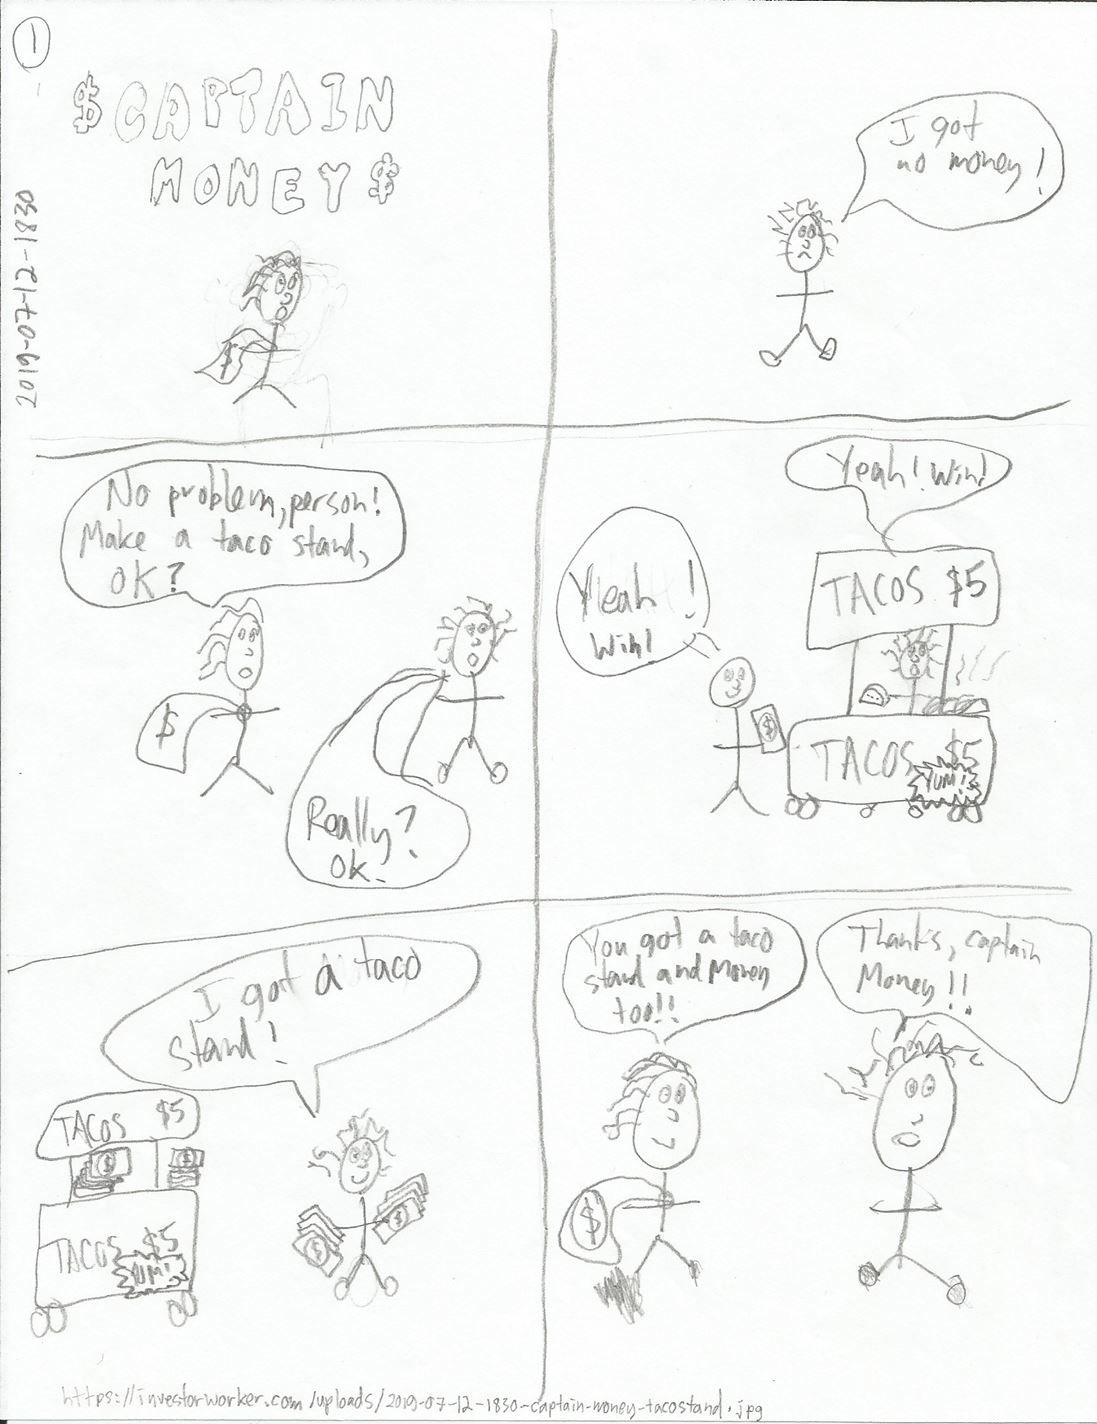 1
2019-07-12-1830
$CAPTAIN
MONEY$
$
I got
no money!
No problem, person!
Make a taco stand,
OK?
$
Really?
OK.
Yeah! Win!
Yeah!
Win!
TACOS $5
$
TACOS $5
YUM!
I got a taco
stand!
TACOS $5
$
$
TACOS $5
YUM!
$
$
You got a taco
stand and money
too!!
$
Thanks, captain
Money!!
https://investorworker.com/uploads/2019-07-12-1830-captain-money-tacostand.jpg